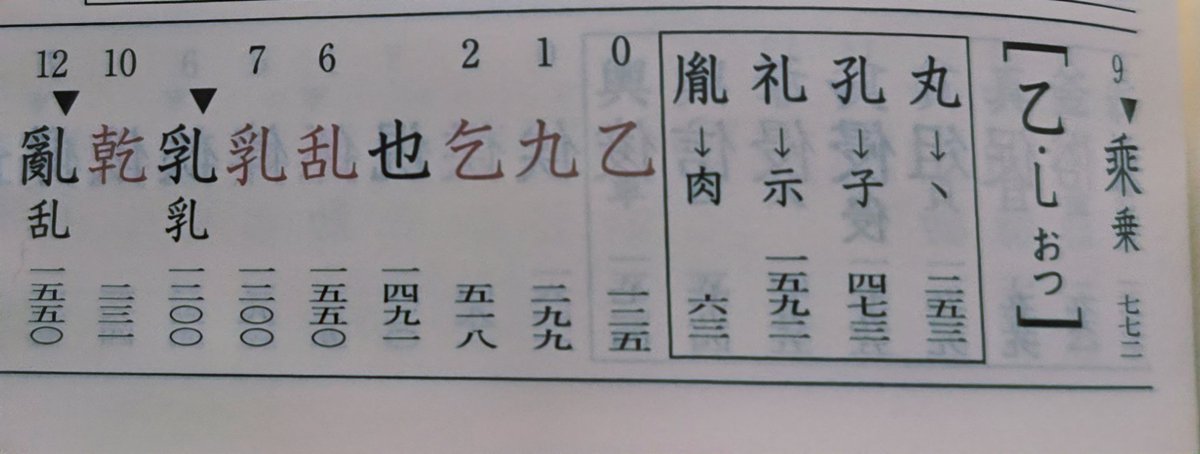 9 ▼乘 乗 七七二
[乙・乚 おつ]
丸→丶 二五三
孔→子 四七三
礼→示 一五九二
胤→肉 六三
0 乙 一二五
1 九 二九九
2 乞 五一八
也 一四九一
6 乱 一五五〇
7 乳 一二〇〇
▼乳 乳 一二〇〇
10 乾 二三一
12 ▼亂 乱 一五五〇